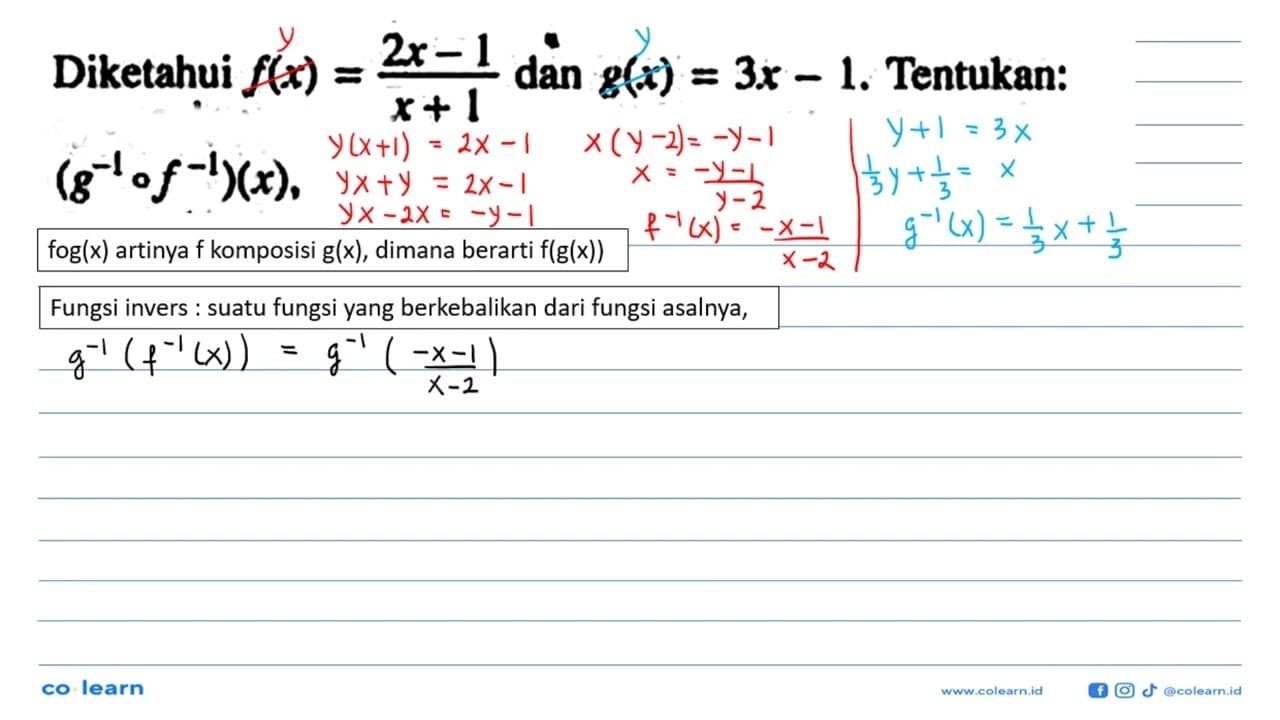 Diketahui f(x) = (2x − 1)/(x + 1) dan g(x) = 3x − 1. Tentukan:
y
y
(g⁻¹ ∘ f⁻¹)(x),
y(x+1) = 2x − 1
yx + y = 2x − 1
yx − 2x = −y − 1
x(y − 2) = −y − 1
x = (−y − 1)/(y − 2)
f⁻¹(x) = (−x − 1)/(x − 2)
y + 1 = 3x
1/3 y + 1/3 = x
g⁻¹(x) = 1/3 x + 1/3
fog(x) artinya f komposisi g(x), dimana berarti f(g(x))
Fungsi invers : suatu fungsi yang berkebalikan dari fungsi asalnya,
g⁻¹(f⁻¹(x)) = g⁻¹((−x − 1)/(x − 2))
co learn
www.colearn.id
@colearn.id